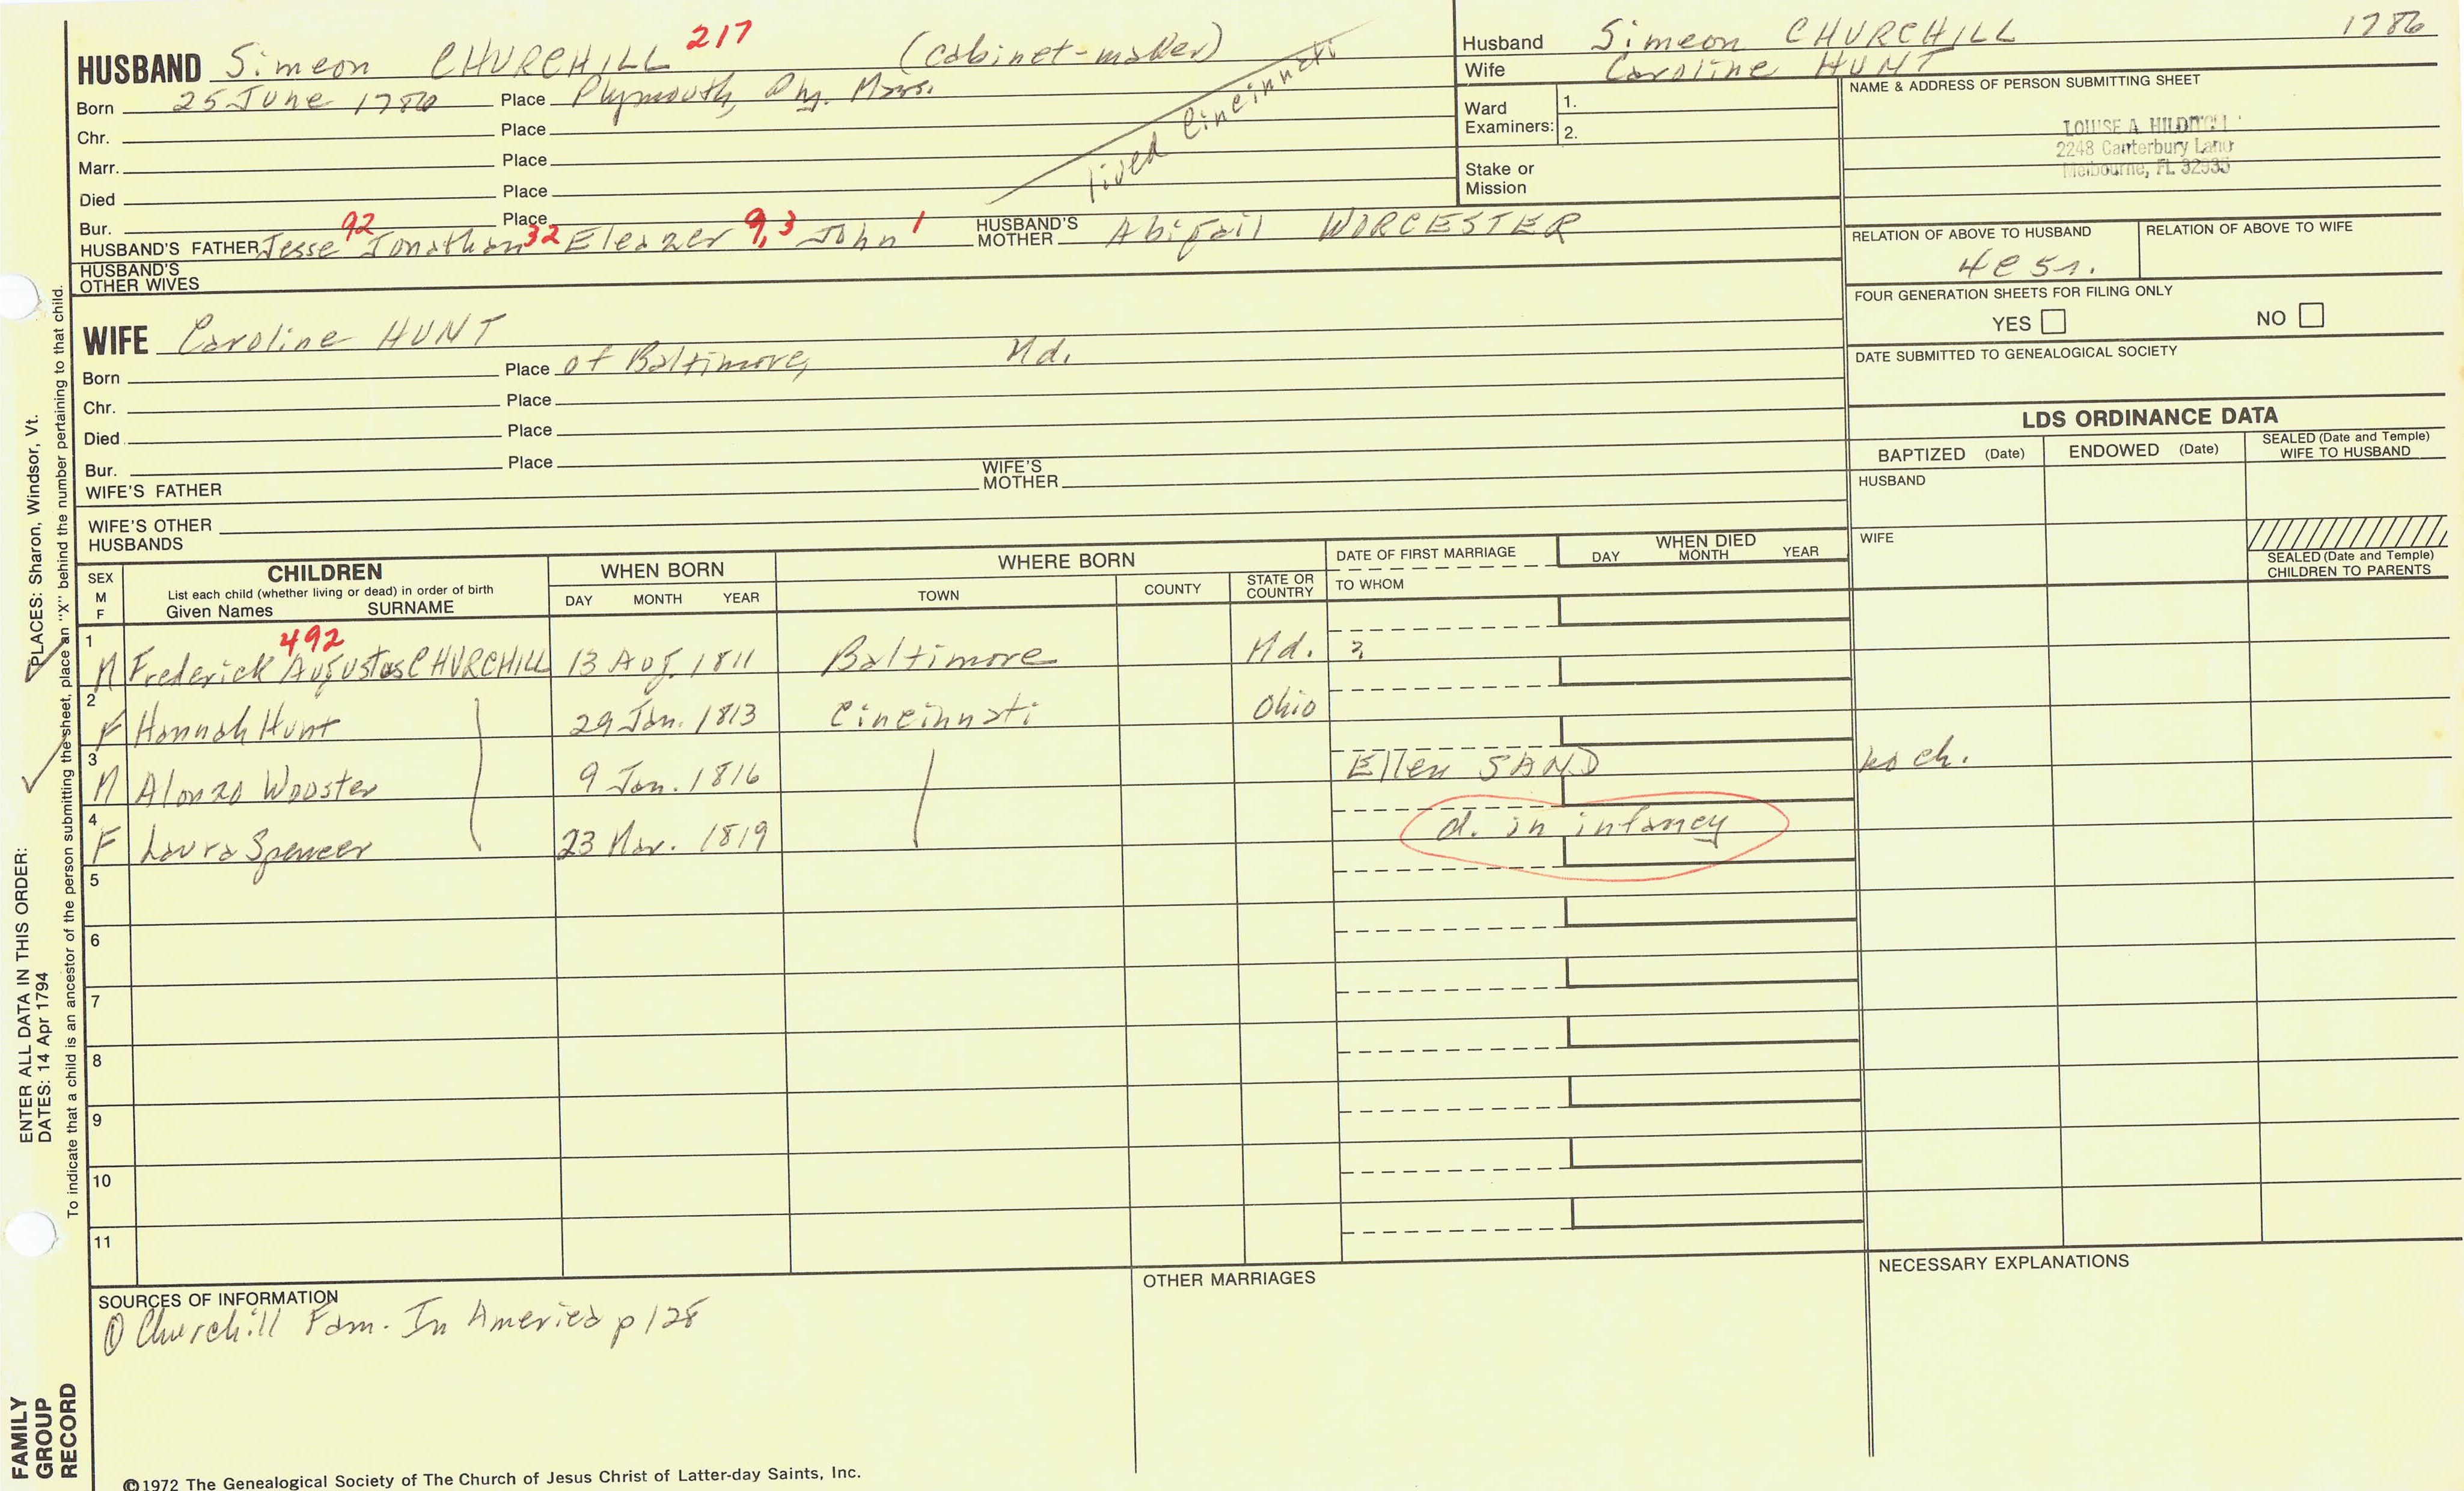 HUSBAND Simeon CHURCHILL 217 (cabinet-maker)
Born 25 June 1786 Place Plymouth, Ply. Mass.
Chr. Place
Marr. Place
Died Place
Bur. Place
lived Cincinnati
HUSBAND'S FATHER Jesse 92 Jonathan 32 Eleazer 9,3 John 1 HUSBAND'S MOTHER Abigail WORCESTER
HUSBAND'S OTHER WIVES
Husband Simeon CHURCHILL 1786
Wife Caroline HUNT
Ward Examiners: 1.
2.
Stake or Mission
NAME & ADDRESS OF PERSON SUBMITTING SHEET
LOUISE A. HILDITCH
2248 Canterbury Lane
Melbourne, FL 32935
RELATION OF ABOVE TO HUSBAND RELATION OF ABOVE TO WIFE
4c5r.
FOUR GENERATION SHEETS FOR FILING ONLY
YES NO
DATE SUBMITTED TO GENEALOGICAL SOCIETY
WIFE Caroline HUNT
Born Place of Baltimore, Md.
Chr. Place
Died Place
Bur. Place
WIFE'S FATHER WIFE'S MOTHER
WIFE'S OTHER HUSBANDS
LDS ORDINANCE DATA
BAPTIZED (Date) ENDOWED (Date) SEALED (Date and Temple) WIFE TO HUSBAND
HUSBAND
WIFE
SEALED (Date and Temple) CHILDREN TO PARENTS
SEX M F CHILDREN List each child (whether living or dead) in order of birth Given Names SURNAME WHEN BORN DAY MONTH YEAR WHERE BORN TOWN COUNTY STATE OR COUNTRY DATE OF FIRST MARRIAGE TO WHOM WHEN DIED DAY MONTH YEAR
1 M Frederick Augustus CHURCHILL 492 13 Aug. 1811 Baltimore Md. ?
2 F Hannah Hunt 29 Jan. 1813 Cincinnati Ohio
3 M Alonzo Wooster 9 Jan. 1816 Ellen SAND no ch.
4 F Laura Spencer 23 Mar. 1819 d. in infancy
5
6
7
8
9
10
11
SOURCES OF INFORMATION
① Churchill Fam. In America p 128
OTHER MARRIAGES
NECESSARY EXPLANATIONS
©1972 The Genealogical Society of The Church of Jesus Christ of Latter-day Saints, Inc.
FAMILY GROUP RECORD
ENTER ALL DATA IN THIS ORDER:
DATES: 14 Apr 1794
PLACES: Sharon, Windsor, Vt.
To indicate that a child is an ancestor of the person submitting the sheet, place an "X" behind the number pertaining to that child.